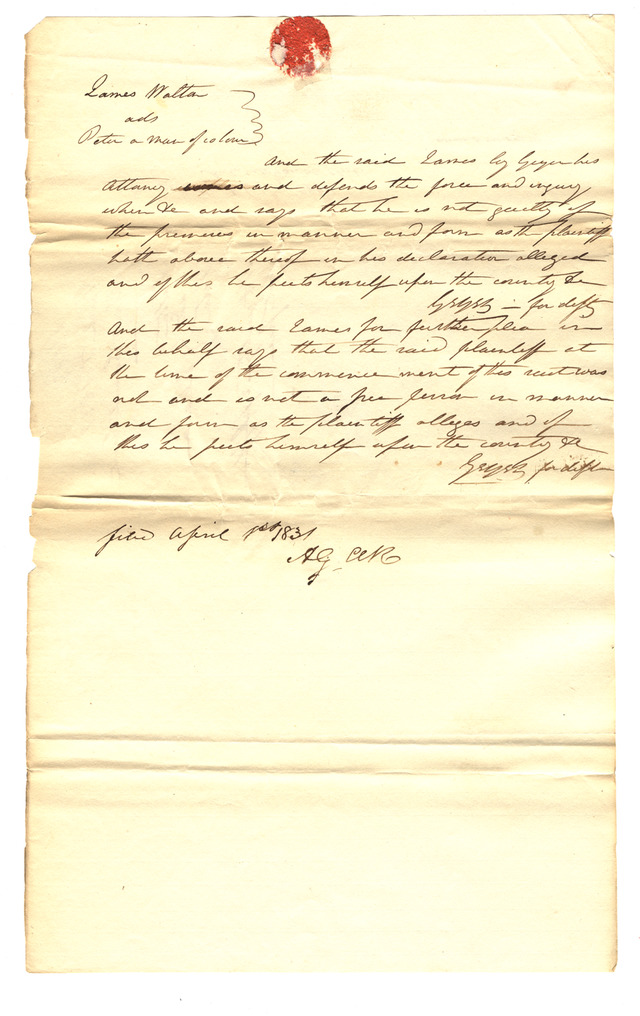 James Walton
ads
Peter a man of colour
And the said James by Geyer his
attorney comes and defends the force and injury
when &c and says that he is not guilty of
the premises in manner and form as the plaintiff
hath above thereof in his declaration alleged
and of this he puts himself upon the country &c
Geyer for deft
And the said James for further plea in
this behalf says that the said plaintiff at
the time of the commencement of this suit was
not and is not a free person in manner
and form as the plaintiff alleges and of
this he puts himself upon the country &c
Geyer for deft
filed April 1st 1831
AG Clk